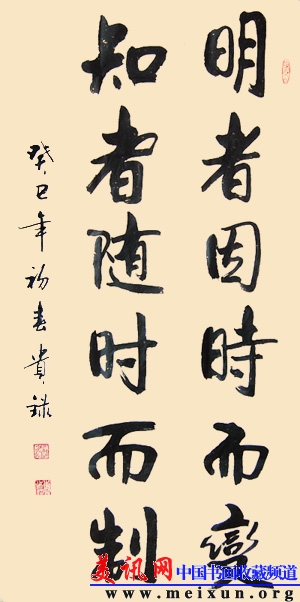 明者因時而變
知者随时而制
癸巳年初春貴録
美讯网 中国书画收藏频道
www.meixun.org